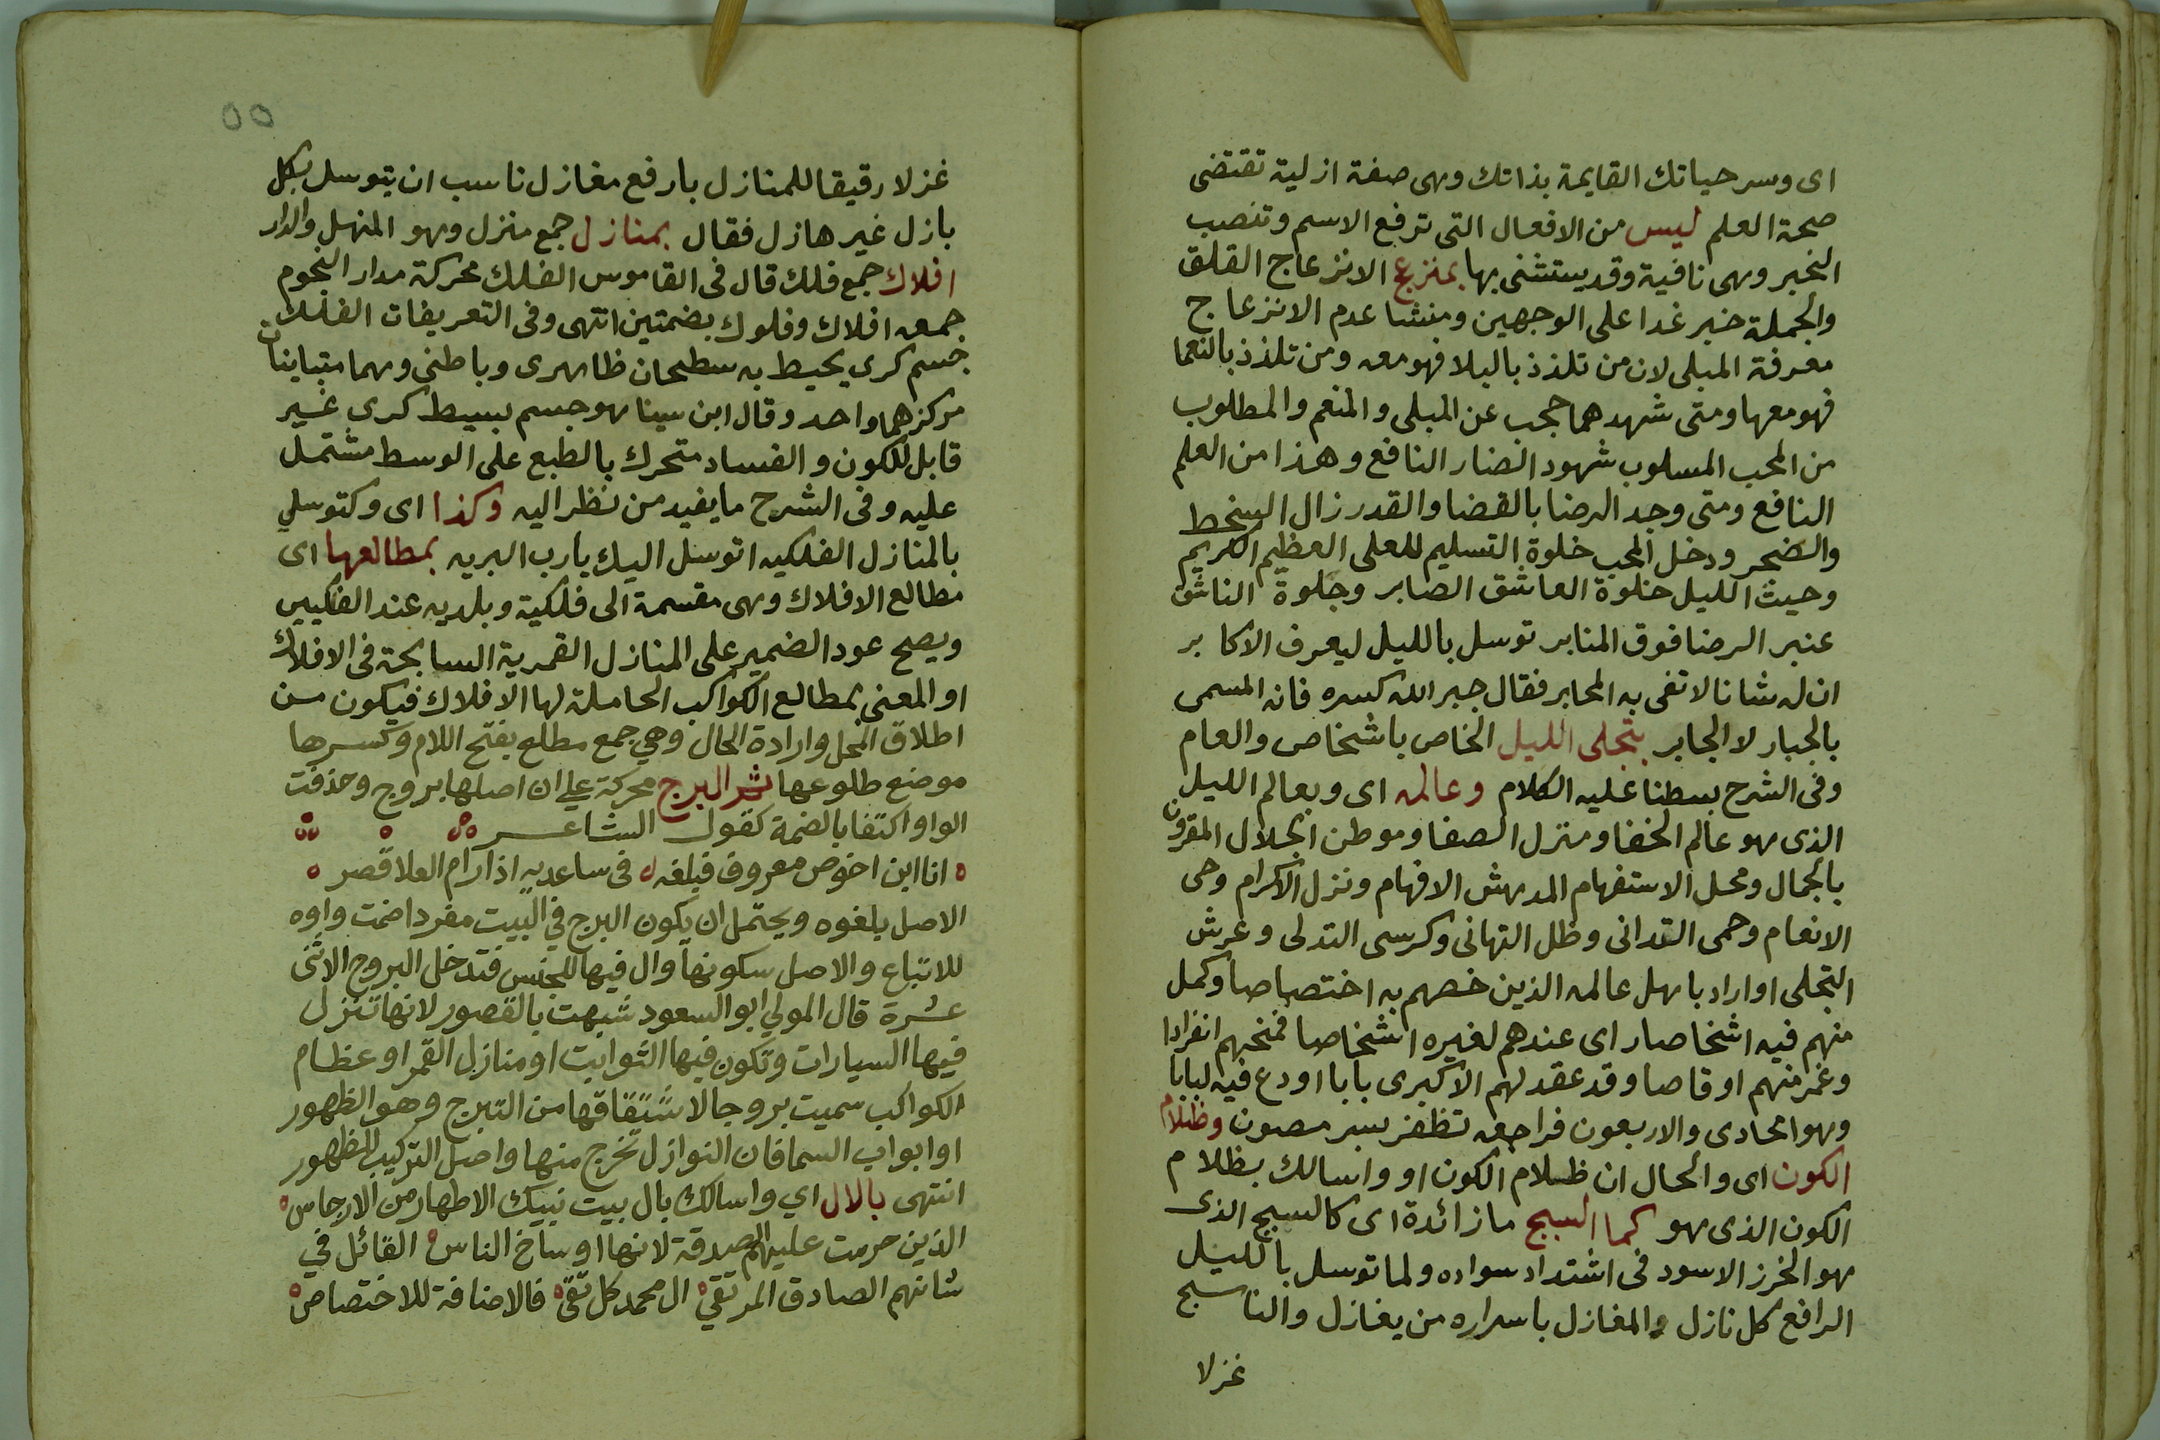 اى وسر حياتك القايمة بذاتك وهى صفة ازلية تقتضى
صحة العلم ليس من الافعال التى ترفع الاسم وتنصب
الخبر وهى نافية وقد يستثنى بها بمنزعج الانزعاج القلق
والجملة خبر غدا على الوجهين ومنشا عدم الانزعاج
معرفة المبلى لان من تلذذ بالبلا فهو معه ومن تلذذ بالنعما
فهو معها ومتى شهدهما حجب عن المبلى والمنعم والمطلوب
من المحب المسلوب شهود الضار النافع وهذا من العلم
النافع ومتى وجد الرضا بالقضا والقدر زال السخط
والضجر ودخل المحب خلوة التسليم للعلى العظيم الكريم
وحيث الليل خلوة العاشق الصابر وجلوة الناشق
عنبر الرضا فوق المنابر توسل بالليل ليعرف الاكابر
ان له شانا لا تفى به المحابر فقال جبر الله كسره فانه المسمى
بالجبار لا الجابر بتجلى الليل الخاص باشخاص والعام
وفى الشرح بسطنا عليه الكلام وعالمه اى وبعالم الليل
الذى هو عالم الخفا ومنزل الصفا وموطن الجلال المقرون
بالجمال ومحل الاستفهام المدهش الافهام ونزل الاكرام وحى
الانعام وحمى التدانى وظل التهانى وكرسى التدلى وعرش
التجلى او اراد باهل عالمه الذين خصهم به اختصاصا وكمل
منهم فيه اشخاصا راى عندهم لغيره اشخاصا فمنحهم انفرادا
وغمر منهم اوقاصا وقد عقد لهم الاكبرى بابا اودع فيه لبابا
وهو الحادى والاربعون فراجعه تظفر بسر مصون وظلام
الكون اى والحال ان ظلام الكون او واسالك بظلام
الكون الذى هو كما السبج ما زائدة اى كالسبج الذى
هو الخرز الاسود فى اشتداد سواده ولما توسل بالليل
الرافع كل نازل والمغازل باسراره من يغازل والناسج
غزلا
٥٥
غزلا رقيقا للمنازل بارفع مغازل ناسب ان يتوسل بكل
بازل غير هازل فقال بمنازل جمع منزل وهو المنهل والدار
افلاك جمع فلك قال فى القاموس الفلك محركة مدار النجوم
جمعه افلاك وفلوك بضمتين انتهى وفى التعريفات الفلك
جسم كرى يحيط به سطحان ظاهرى وباطنى وهما متباينان
مركزهما واحد وقال ابن سينا هو جسم بسيط كرى غير
قابل للكون والفساد متحرك بالطبع على الوسط مشتمل
عليه وفى الشرح ما يفيد من نظر اليه وكذا اى وكتوسلي
بالمنازل الفلكيه اتوسل اليك يارب البريه بمطالعها اى
مطالع الافلاك وهى مقسمة الى فلكية وبلديه عند الفلكيين
ويصح عود الضمير على المنازل القمرية السابحة فى الافلاك
او المعنى بمطالع الكواكب الحاملة لها الافلاك فيكون من
اطلاق المحل وارادة الحال وهي جمع مطلع بفتح اللام وكسرها
موضع طلوعها ثم البرج محركة علي ان اصلها بروج وحذفت
الواو اكتفا بالضمة كقول الشاعر
انا ابن اخوص معروف فبلغه فى ساعديه اذا رام العلا قصر
الاصل بلغوه ويحتمل ان يكون البرج في البيت مفردا ضمت واوه
للاتباع والاصل سكونها وال فيها للجنس فتدخل البروج الاثنى
عشرة قال المولي ابو السعود شبهت بالقصور لانها تنزل
فيها السيارات وتكون فيها الثوابت او منازل القمر او عظام
الكواكب سميت بروجا لاشتقاقها من التبرج وهو الظهور
او ابواب السما فان النوازل تخرج منها واصل التركيب للظهور
انتهى بالال اي واسالك بال بيت نبيك الاطهار من الارجاس
الذين حرمت عليهم الصدقة لانها اوساخ الناس القائل في
شانهم الصادق المرتقي ال محمد كل تقي فالاضافة للاختصاص